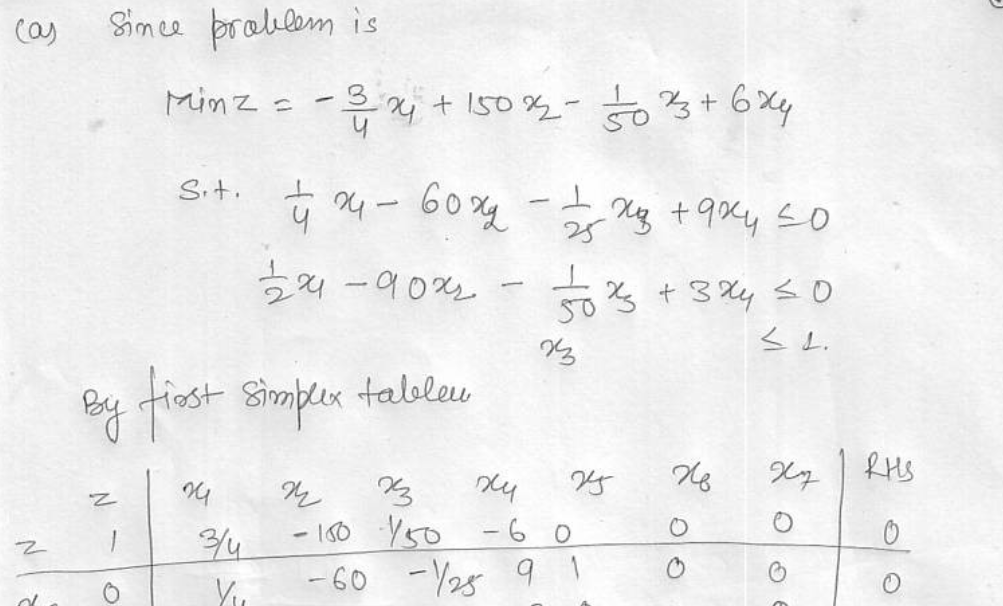 (a) Since problem is
Min z = - 3/4 x1 + 150 x2 - 1/50 x3 + 6x4
S.t. 1/4 x1 - 60x2 - 1/25 x3 + 9x4 ≤ 0
1/2 x1 - 90x2 - 1/50 x3 + 3x4 ≤ 0
x3 ≤ 1.
By first simplex tableu
z x1 x2 x3 x4 x5 x6 x7 RHS
z 1 3/4 -150 1/50 -6 0 0 0 0
0 1/4 -60 -1/25 9 1 0 0 0